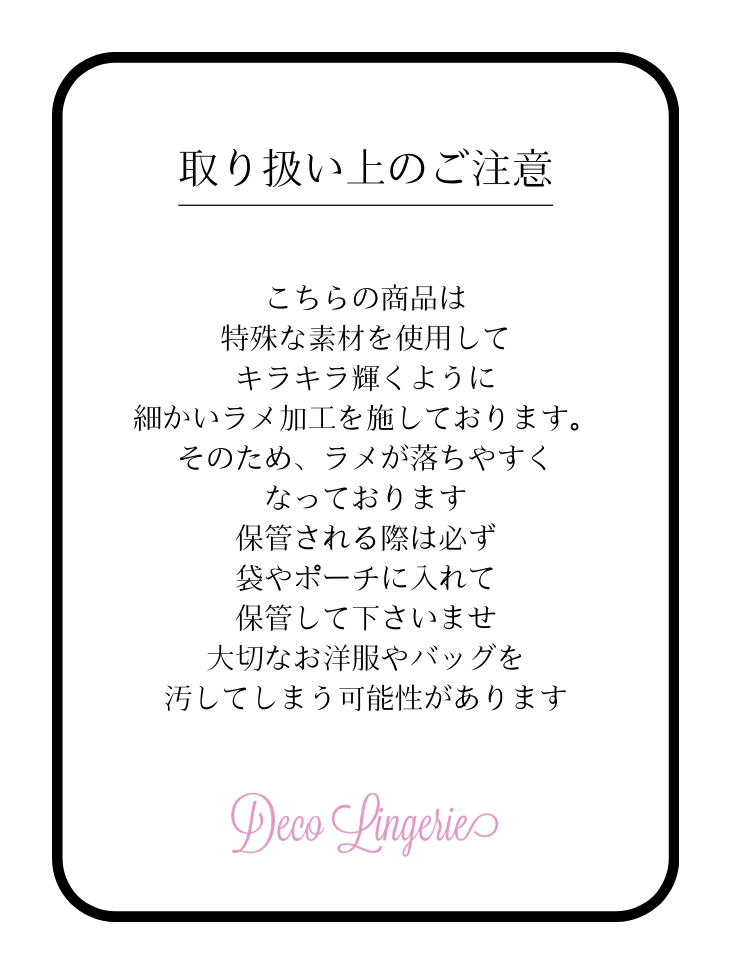 取り扱い上のご注意
こちらの商品は
特殊な素材を使用して
キラキラ輝くように
細かいラメ加工を施しております。
そのため、ラメが落ちやすく
なっております
保管される際は必ず
袋やポーチに入れて
保管して下さいませ
大切なお洋服やバッグを
汚してしまう可能性があります
Deco Lingerie